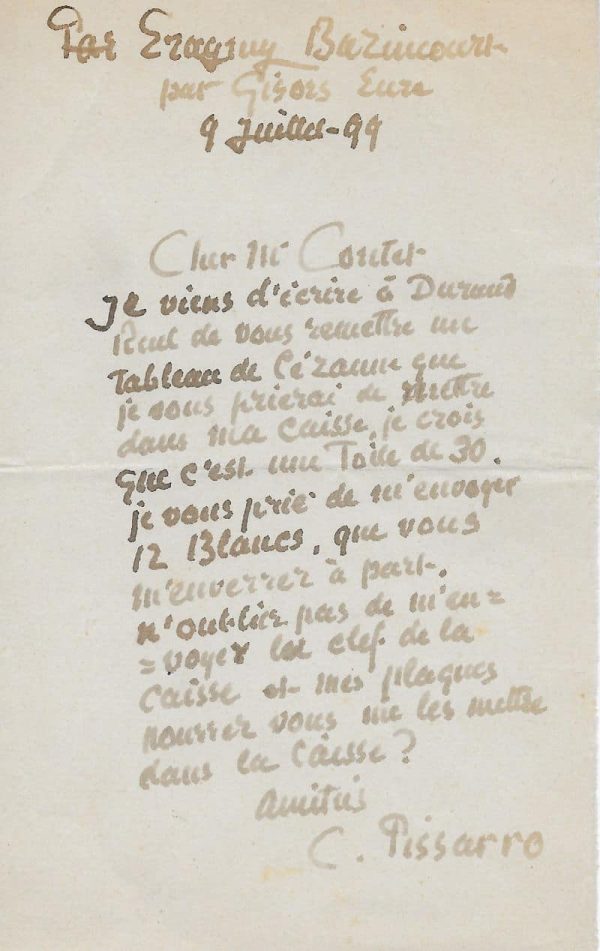 Par Eragny Bazincourt
par Gisors Eure
9 Juillet-99
Cher Mr Contet
Je viens d'écrire à Durand
Ruel de vous remettre un
Tableau de Cézanne que
je vous prierai de mettre
dans ma caisse, je crois
que c'est une Toile de 30.
je vous prie de m'envoyer
12 Blancs, que vous
m'enverrer à part.
n'oublier pas de m'en=
=voyer la clef de la
caisse et mes plaques
pourrer vous me les mettre
dans la caisse?
Amitiés
C. Pissarro